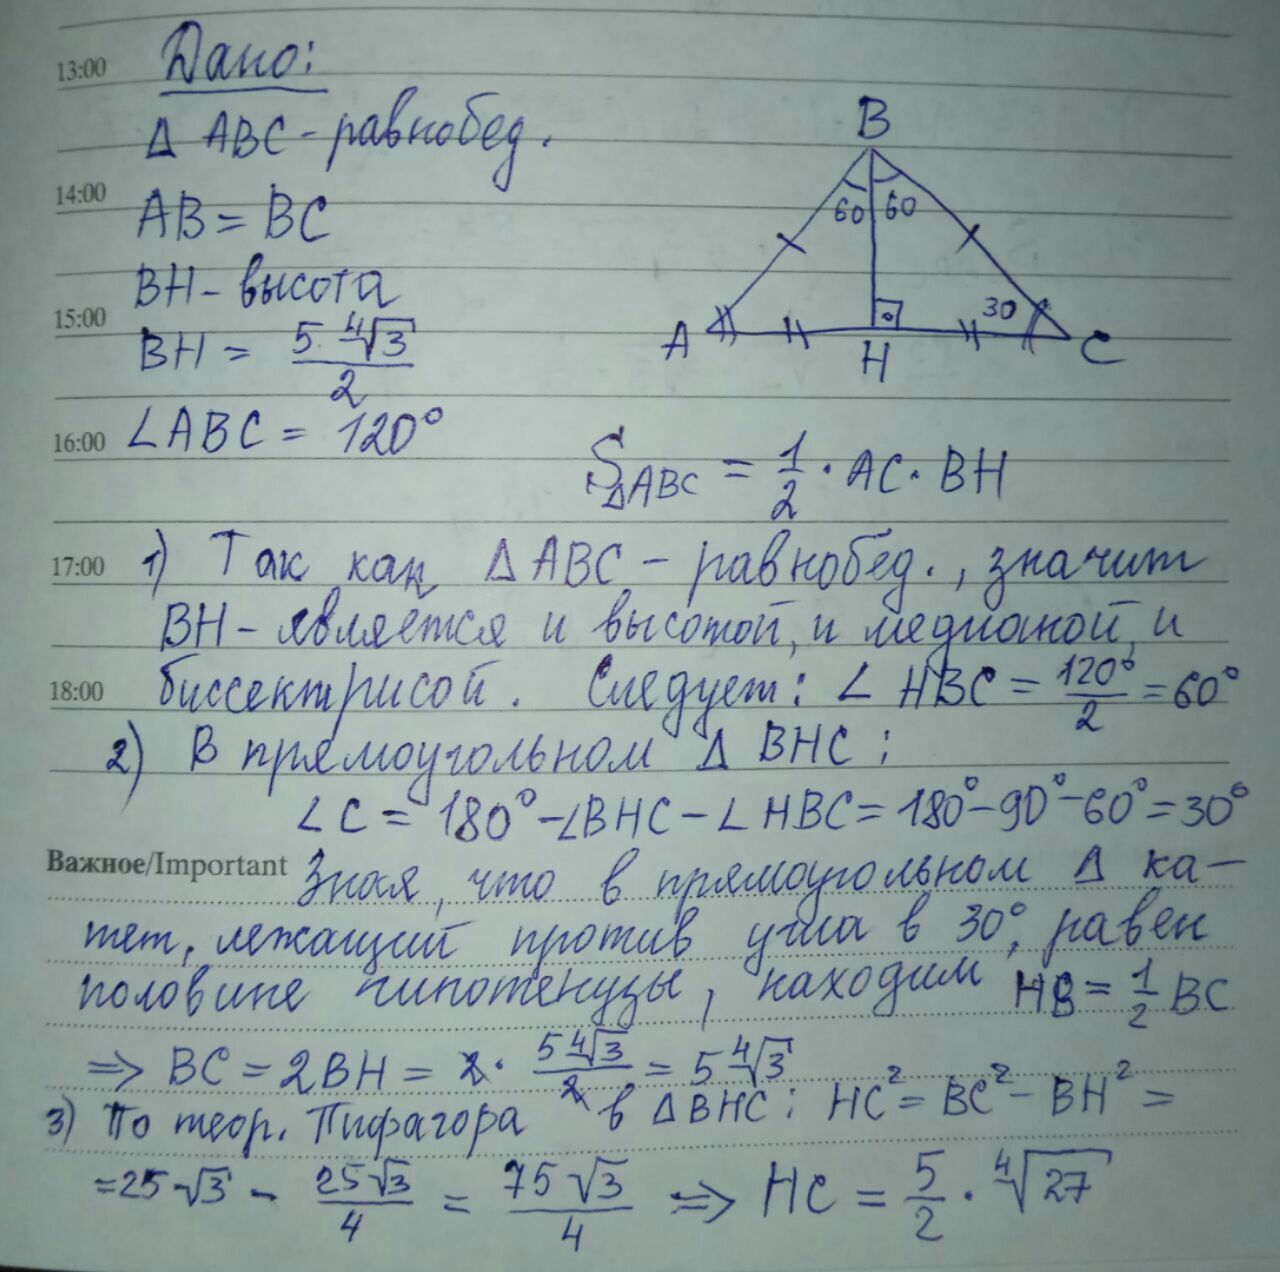 13:00 Дано:
Δ ABC - равнобед.
B
14:00 AB = BC
60 60
BH - высота
15:00 BH = 5 ∜3 / 2
30
A H C
16:00 ∠ABC = 120°
S ΔABC = 1/2 · AC · BH
17:00 1) Так как Δ ABC - равнобед., значит
BH - является и высотой, и медианой, и
18:00 биссектрисой. Следует: ∠ HBC = 120°/2 = 60°
2) В прямоугольном Δ BHC:
∠C = 180° - ∠BHC - ∠HBC = 180° - 90° - 60° = 30°
Важное/Important Зная, что в прямоугольном Δ ка-
тет, лежащий против угла в 30°, равен
половине гипотенузы, находим HB = 1/2 BC
⇒ BC = 2BH = 2 · 5∜3 / 2 = 5∜3
3) По теор. Пифагора в ΔBHC: HC² = BC² - BH² =
= 25√3 - 25√3 / 4 = 75√3 / 4 ⇒ HC = 5/2 · ∜27